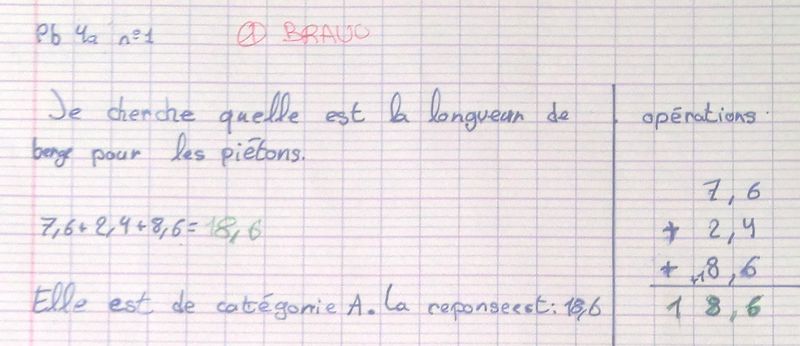 Pb 4a n°1 ① BRAVO
Je cherche quelle est la longueur de
berge pour les piétons.
7,6+2,4+8,6=18,6
Elle est de catégorie A. La reponse est: 18,6
opérations.
7,6
+ 2,4
+ +18,6
1 8,6